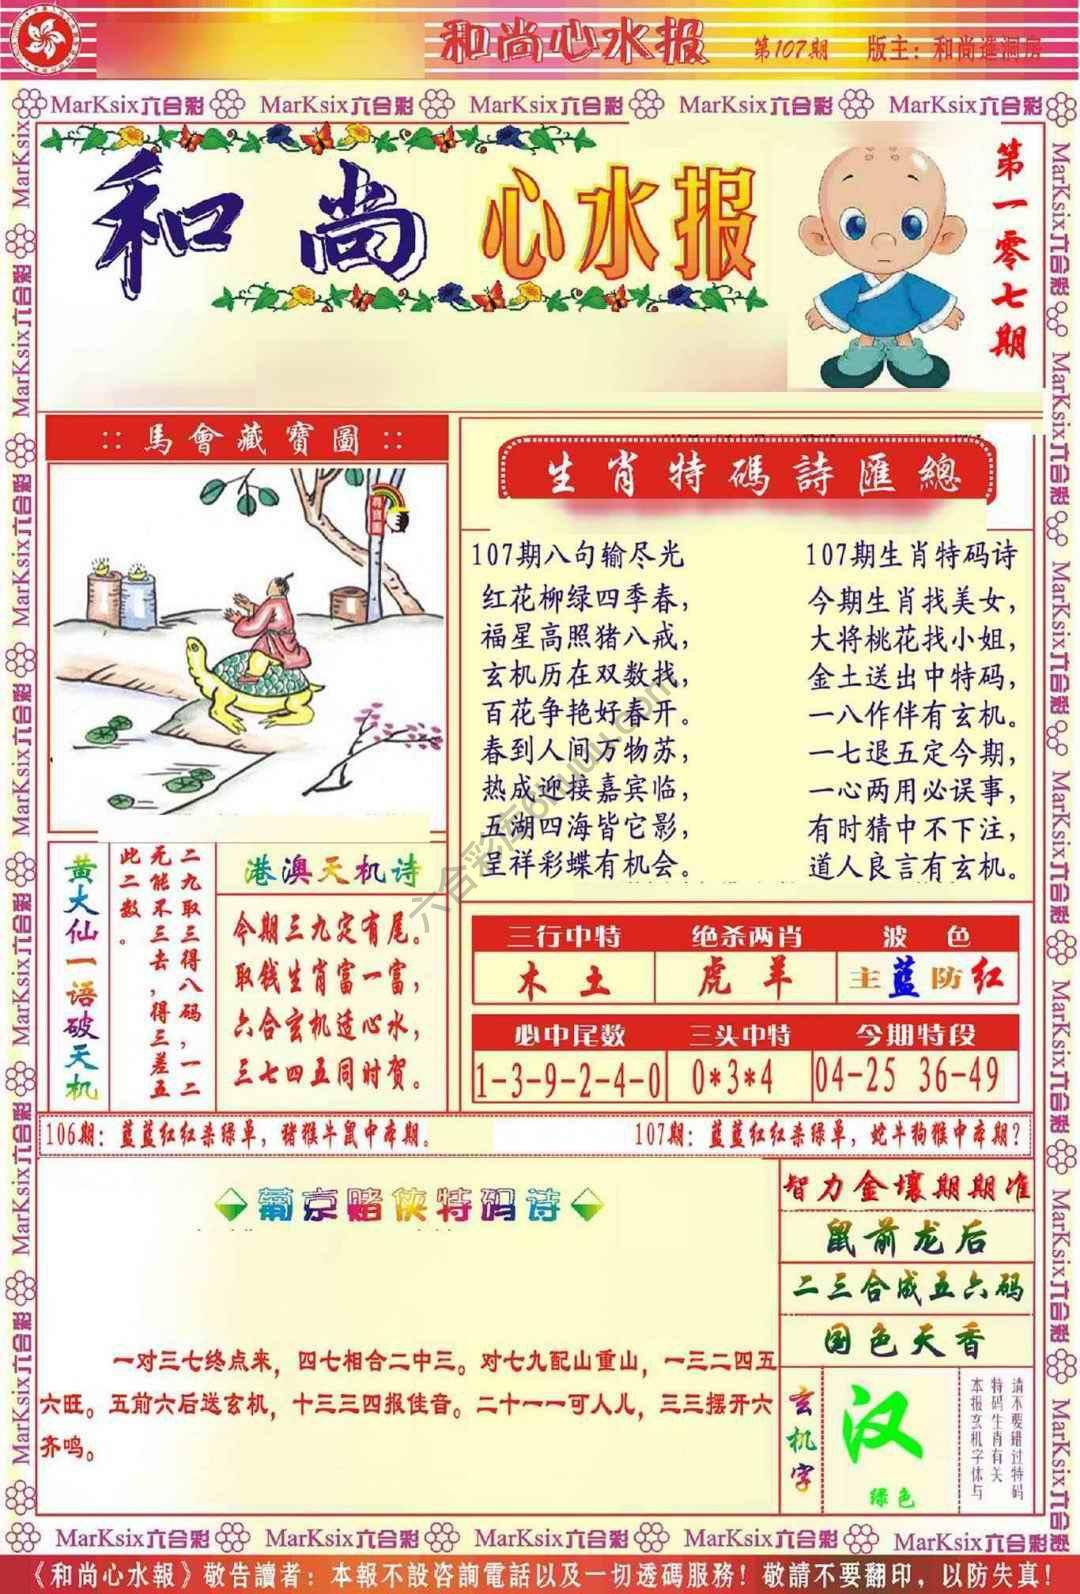 和尚心水报 第107期 版主：和尚進洞房
MarKsix六合彩 MarKsix六合彩 MarKsix六合彩 MarKsix六合彩 MarKsix六合彩
和尚 心水报
第一零七期
:: 馬會藏寶圖 ::
尋寶圖
黄大仙一语破天机
二九取三得八码，一二
无能不三去，得三差五
此二数。
港澳天机诗
今期三九定有尾。
取钱生肖富一富，
六合玄机适心水，
三七四五同时贺。
生肖特碼詩匯總
107期八句输尽光
红花柳绿四季春，
福星高照猪八戒，
玄机历在双数找，
百花争艳好春开。
春到人间万物苏，
热成迎接嘉宾临，
五湖四海皆它影，
呈祥彩蝶有机会。
107期生肖特码诗
今期生肖找美女，
大将桃花找小姐，
金土送出中特码，
一八作伴有玄机。
一七退五定今期，
一心两用必误事，
有时猜中不下注，
道人良言有玄机。
六合彩库6huuu.com
三行中特 绝杀两肖 波 色
木 土 虎 羊 主蓝防红
必中尾数 三头中特 今期特段
1-3-9-2-4-0 0*3*4 04-25 36-49
106期：蓝蓝红红杀绿单，猪猴牛鼠中本期。
107期：蓝蓝红红杀绿单，蛇牛狗猴中本期？
葡京赌侠特码诗
一对三七终点来，四七相合二中三。对七九配山重山，一三二四五
六旺。五前六后送玄机，十三三四报佳音。二十一一可人儿，三三摆开六
齐鸣。
智力金壤期期准
鼠前龙后
二三合成五六码
国色天香
玄机字
汉
绿色
请不要错过特码
特码生肖有关
本报玄机字体与
MarKsix六合彩 MarKsix六合彩 MarKsix六合彩 MarKsix六合彩 MarKsix六合彩
《和尚心水報》敬告讀者：本報不設咨詢電話以及一切透碼服務！敬請不要翻印，以防失真！